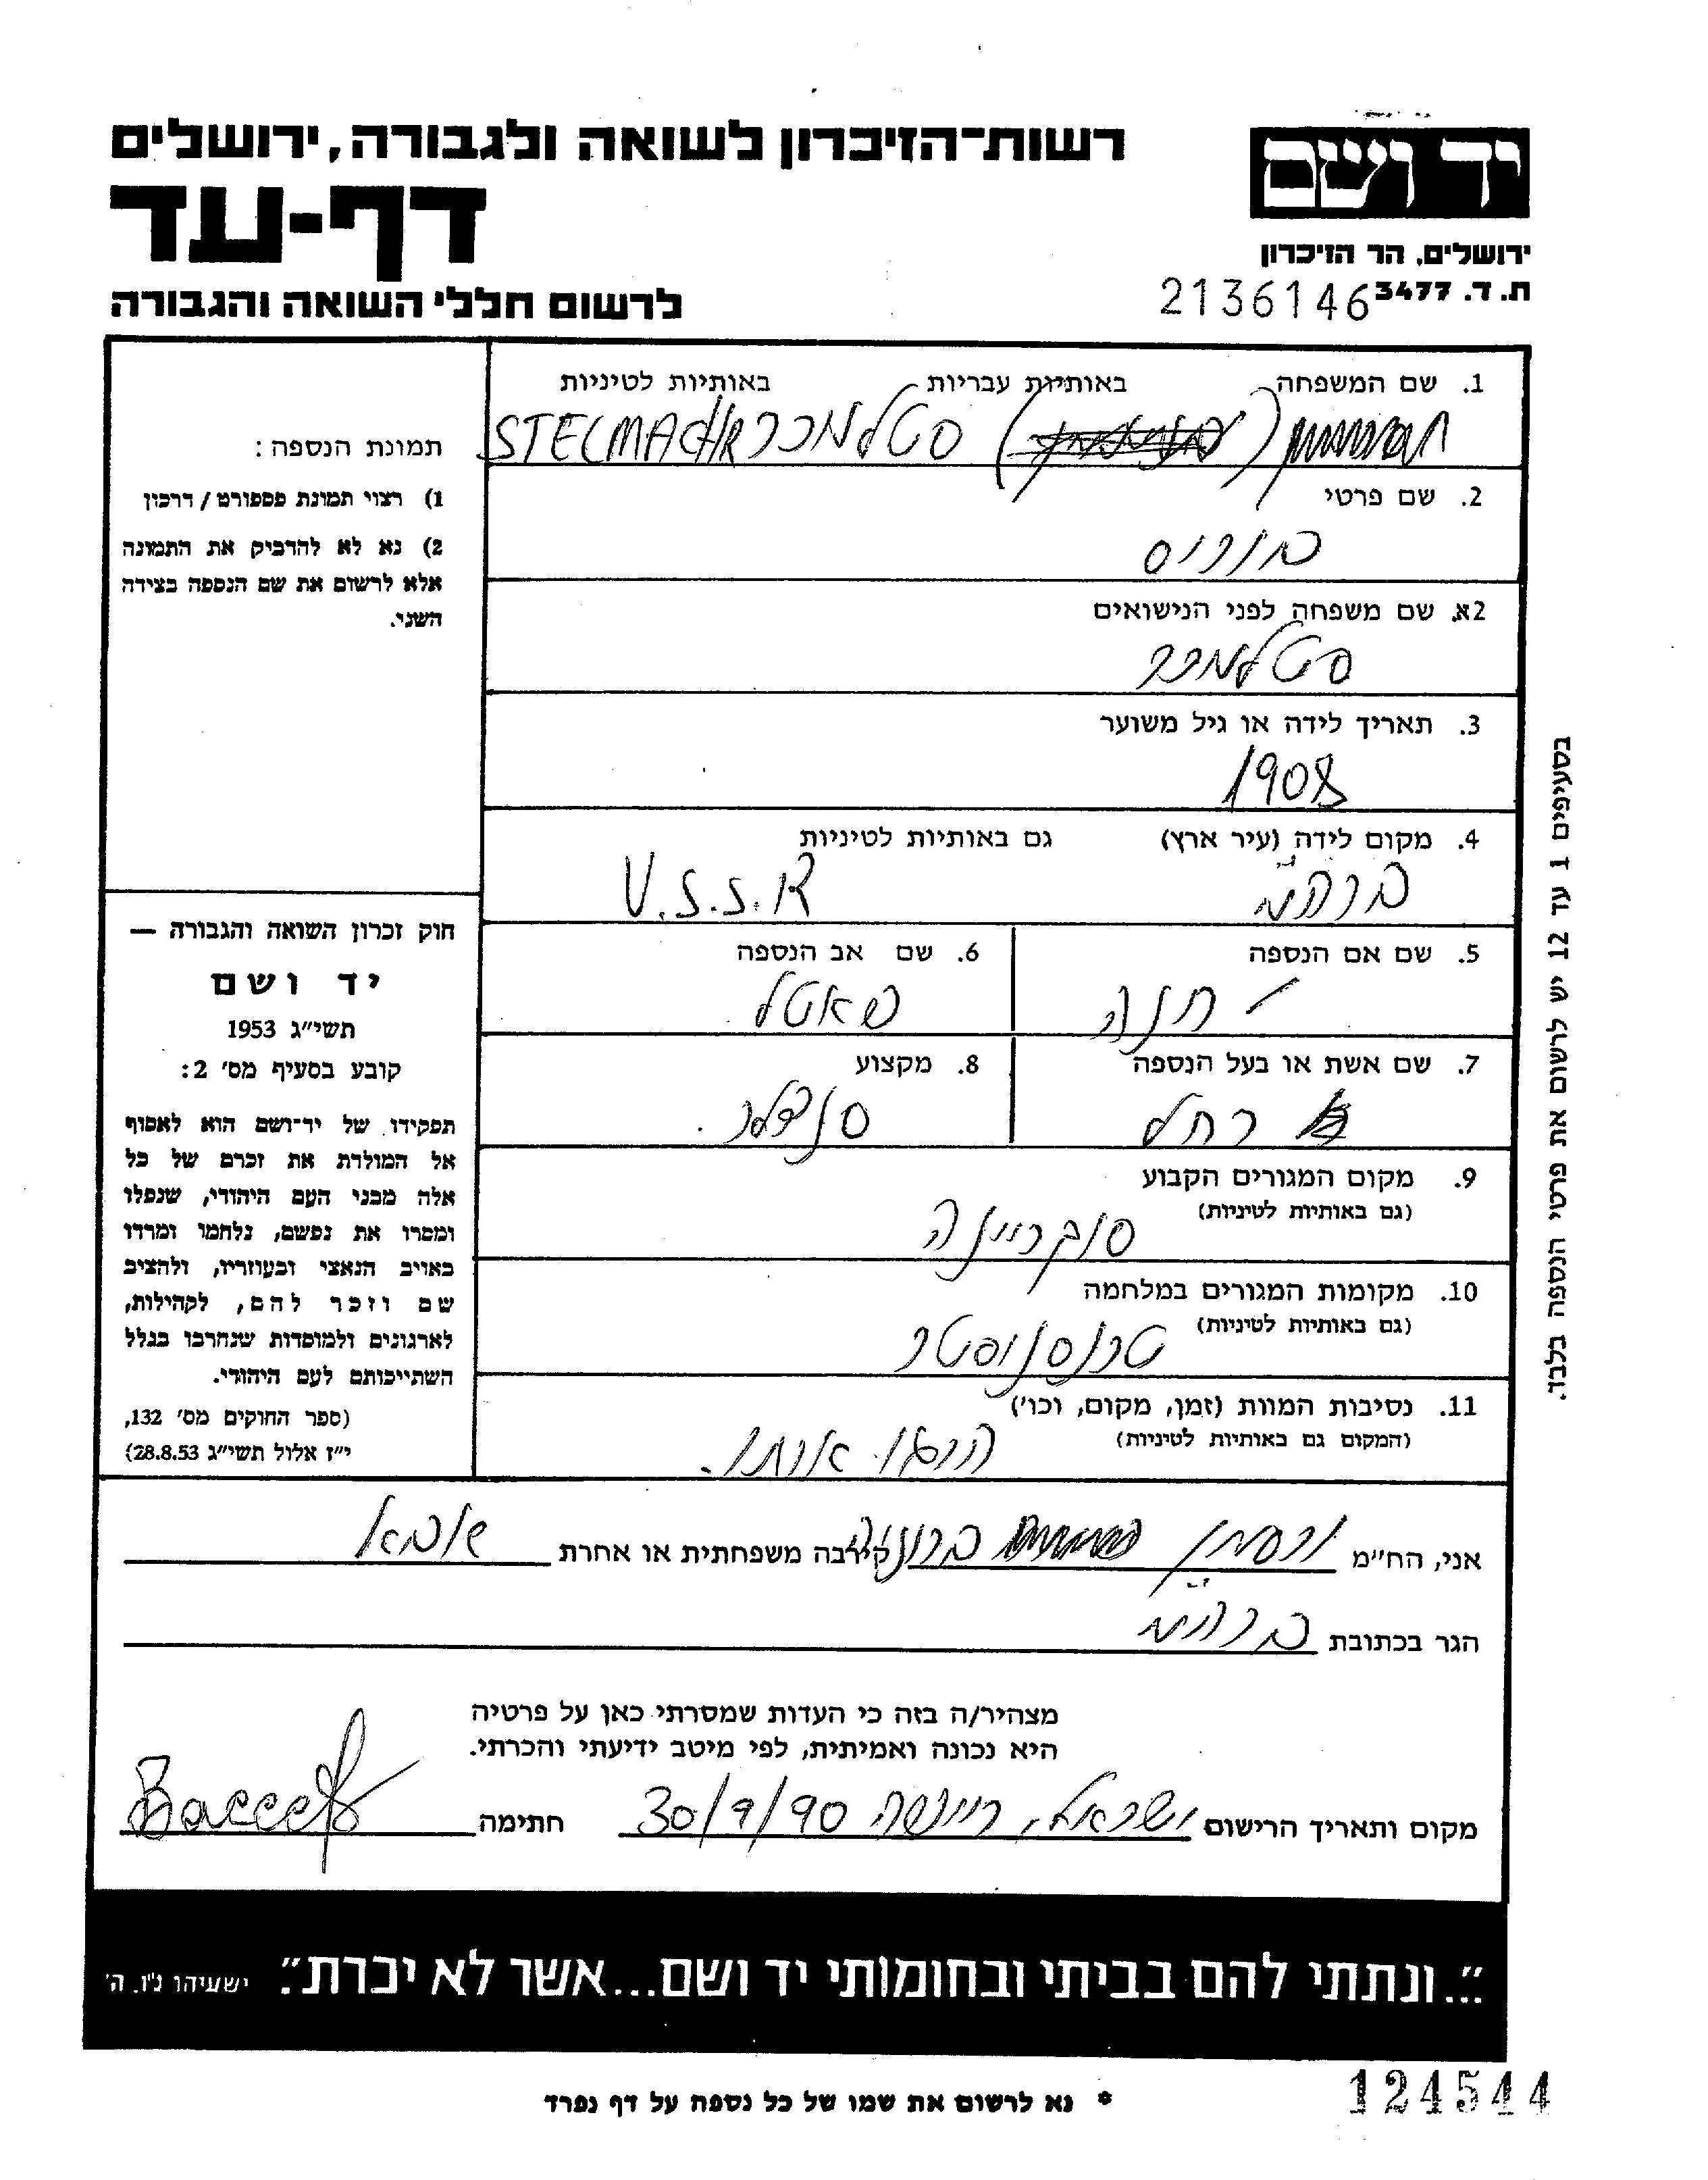 יד ושם
רשות־הזיכרון לשואה ולגבורה, ירושלים
דף-עד
ירושלים, הר הזיכרון
ת. ד. 3477
2136146
לרשום חללי השואה והגבורה
1. שם המשפחה באותיות עבריות באותיות לטיניות
סטלמכר STELMACHR
2. שם פרטי
בוריס
2א. שם משפחה לפני הנישואים
סטלמכר
3. תאריך לידה או גיל משוער
1908
4. מקום לידה (עיר ארץ) גם באותיות לטיניות
ברהמ" U.S.S.R
5. שם אם הנספה
חנה
6. שם אב הנספה
7. שם אשת או בעל הנספה
רחל
8. מקצוע
סנדלר.
9. מקום המגורים הקבוע
(גם באותיות לטיניות)
10. מקומות המגורים במלחמה
(גם באותיות לטיניות)
11. נסיבות המוות (זמן, מקום, וכו')
(המקום גם באותיות לטיניות)
הרגו אותו.
תמונת הנספה:
1) רצוי תמונת פספורט / דרכון
2) נא לא להדביק את התמונה
אלא לרשום את שם הנספה בצידה
השני.
חוק זכרון השואה והגבורה —
יד ושם
תשי״ג 1953
קובע בסעיף מס' 2:
תפקידו של יד־ושם הוא לאסוף
אל המולדת את זכרם של כל
אלה מבני העם היהודי, שנפלו
ומסרו את נפשם, נלחמו ומרדו
באויב הנאצי ובעוזריו, ולהציב
שם וזכר להם, לקהילות,
לארגונים ולמוסדות שנחרבו בגלל
השתייכותם לעם היהודי.
(ספר החוקים מס' 132,
י״ז אלול תשי״ג 28.8.53)
בסעיפים 1 עד 12 יש לרשום את פרטי הנספה בלבד.
אני, הח״מ קירבה משפחתית או אחרת אבא
הגר בכתובת
מצהיר/ה בזה כי העדות שמסרתי כאן על פרטיה
היא נכונה ואמיתית, לפי מיטב ידיעתי והכרתי.
מקום ותאריך הרישום ישראל, 30/9/90 חתימה
"...ונתתי להם בביתי ובחומותי יד ושם...אשר לא יכרת". ישעיהו נ"ו. ה'
* נא לרשום את שמו של כל נספה על דף נפרד
124544